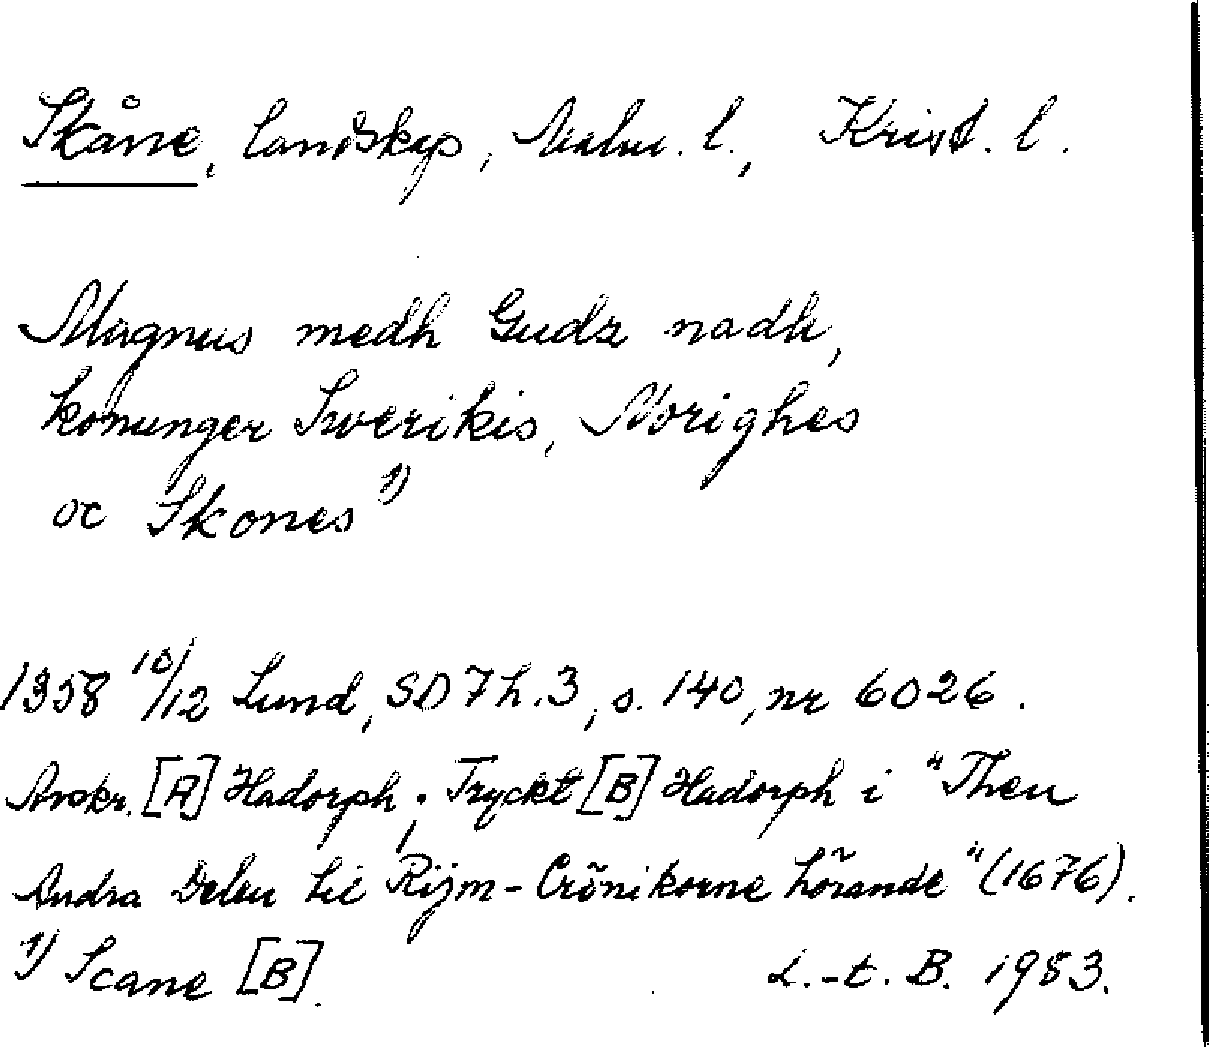 Skåne, landskap, Malm. l., Krist. l.
Magnus medh Gudz nadh,
konunger Swerikis, Norighes
oc Skones 1)
1358 10/12 Lund, SD 7 h. 3, s. 140, nr 6026.
Avskr. [A] Hadorph; Tryckt [B] Hadorph i "Then
Andra Delen til Rijm-Crönikorne hörande" (1676).
1) Scane [B]. L.-t. B. 1983.